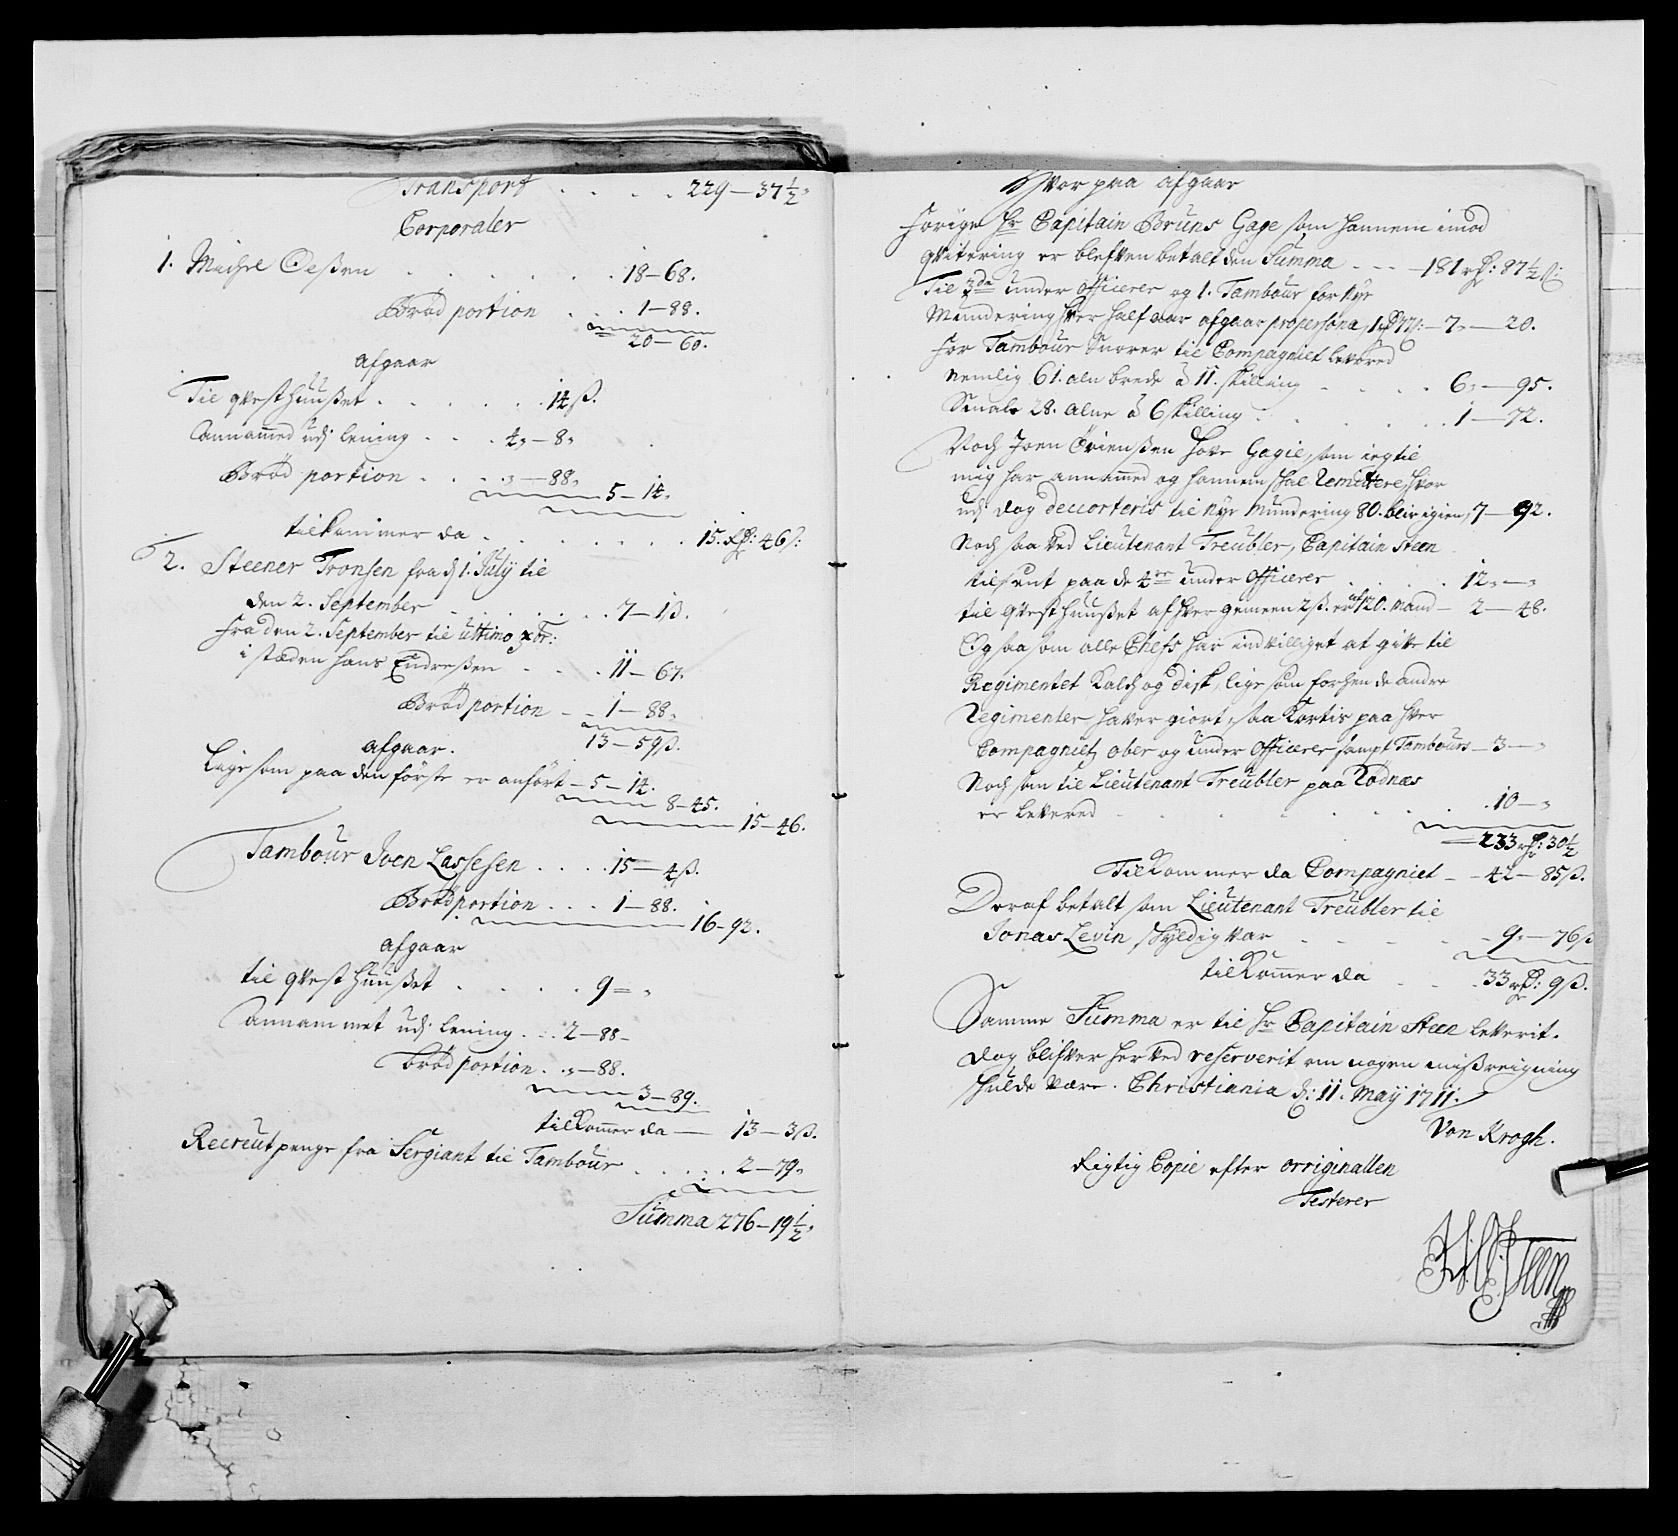 Transport . . . . 229 — 37½
Corporaler
1. Michel Oeßen . . . . . . 18 — 68.
Brød portion . . . 1 — 88.
20 — 60.
afgaar
Til qvesthuußet . . . . . . 14 ß.
Annammed udj lening . . . 4 — 8
Brød portion . . . . — 88
5 — 14
tilkommer da . . . . . . . 15 Rdr: 46 ß:
2. Steener Tronsen fra d: 1. July til
den 2. September . . . . . . 7 — 1 ß.
Fra den 2. September til ultimo xbr:
i stæden Hans Endreßen . . . . 11 — 67.
Brød portion — 1 — 88
afgaar. 13 — 59 ß.
Lige som paa den første er anført — 5 — 14.
8 — 45.
15 — 46.
Tambour Joen Lassesen . . . . 15 — 4 ß.
Brød portion . . . 1 — 88.
16 — 92.
afgaar
til qvesthuußet . . . . . 9 =
Annammet udj lening . . . 2 — 88
Brød portion . . — 88.
3 — 89.
tilkommer da — 13 — 3 ß.
Recreut penge fra Sergiant til Tambour . . . . . 2 — 79
Summa 276 — 19½
Hvor paa afgaar
Forige Hr Capitain Bruns Gage som hannem imod
qvitering er blefven betalt den Summa . . . 181 rdr: 87½ ß:
Til 3de under officerer og 1. Tambour for Nye
Mundering hver half aar afgaar pro persona, — 7 — 20.
For Tambour Snorer til Compagniet levered
nemlig 61. aln brede à 11. skilling . . . . 6 — 95.
Smale 28. alne à 6 skilling . . . . . 1 — 72.
Noch Joen hans Gagie, som ieg til
mig har annammed og hannem skal Remittere, hvor
udj dog decorteris til nye Mundering 80. blir igien, 7 — 92.
Noch saa ved Lieutenant Treubler, Capitain Steen
tilsent paa de 4re under Officerer . . . . 12 —
til qvesthuußet af hver gemeen 2 ß. er af 120. mand — 2 — 48.
Og saasom alle Chefs har indvilliget at give til
Regimentet Kalch og disk, lige som forhen de andre
Regimenter haver giort, saa Kortis paa hver
Compagniets ober og under Officerer sampt Tambours — 3 —
Noch som til Lieutenant Treubler paa Kodnæs
er levered . . . . . . . 10 —
233 rdr: 30½
Tilkommer da Compagniet — 42 — 85 ß.
Deraf betalt som Lieutenant Treubler til
Jonas Levin skyldig var . . . . 9 — 76 ß
tilkommer da . . . 33 rdr: 9 ß.
Samme Summa er til Hr Capitain Steen leverit.
dog blifver herved reserverit om nogen mißreigning
skulde være. Christiania d: 11. May 1711.
Von Krogh.
Rigtig Copie efter orriginallen
Testerer
Steen